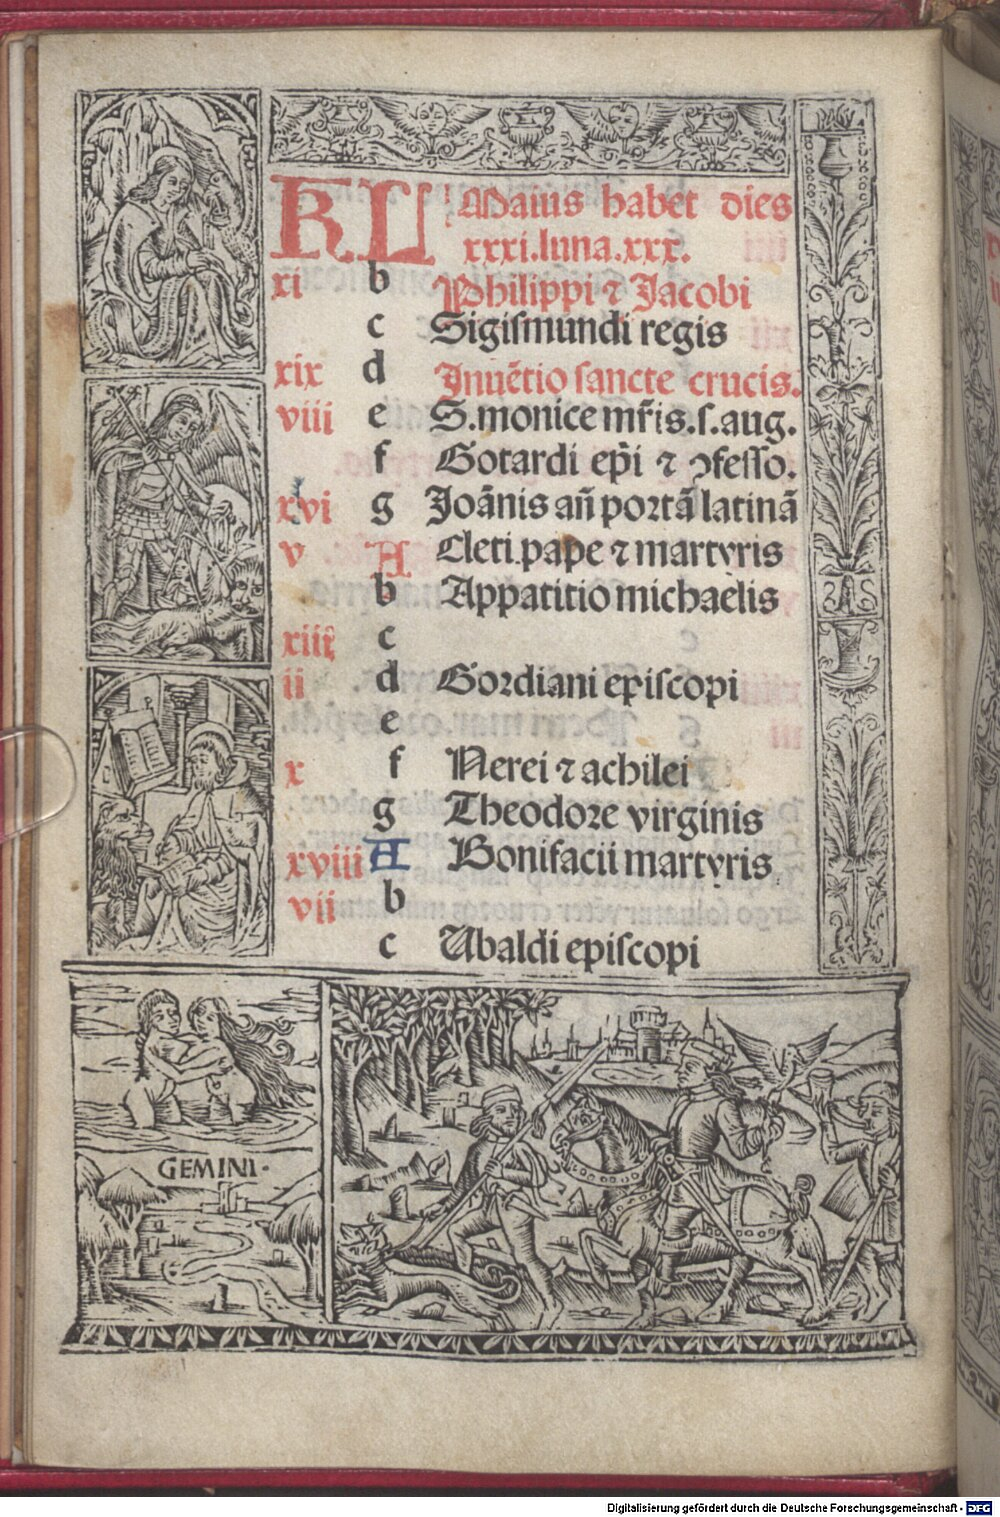 KL Maius habet dies
xxxi.luna.xxx.
xi b Philippi ⁊ Jacobi
c Sigiſmundi regis
xix d Inuẽtio ſancte crucis.
viii e S.monice mr̃is.ſ.aug.
f Gotardi ep̃i ⁊ ꝯfeſſo.
xvi g Joãnis añ portã latinã
v A Cleti.pape ⁊ martyris
b Appatitio michaelis
xiii c
ii d Gordiani epiſcopi
e
x f Nerei ⁊ achilei
g Theodore virginis
xviii A Bonifacii martyris
vii b
c Ubaldi epiſcopi
GEMINI·
Digitalisierung gefördert durch die Deutsche Forschungsgemeinschaft - DFG